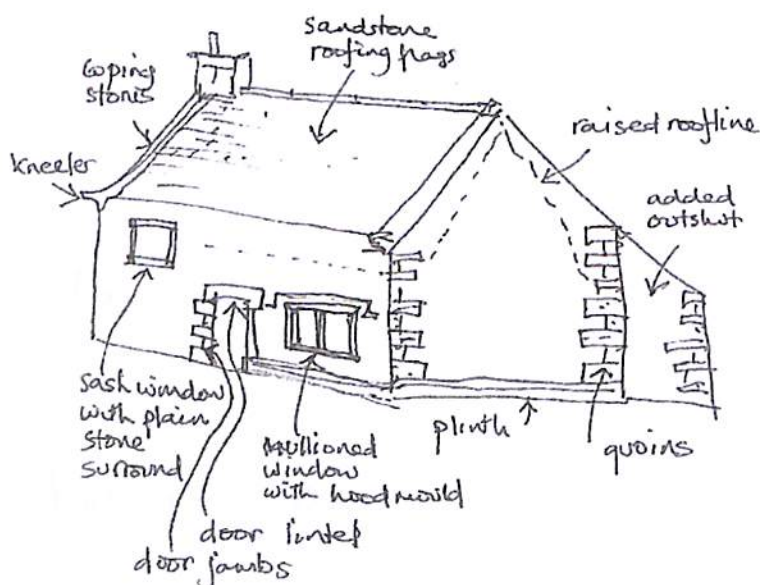 Sandstone
roofing flags
Coping
stones
kneeler
raised roofline
added
outshut
sash window
with plain
stone
surround
Mullioned
window
with hood mould
plinth
quoins
door lintel
door jambs